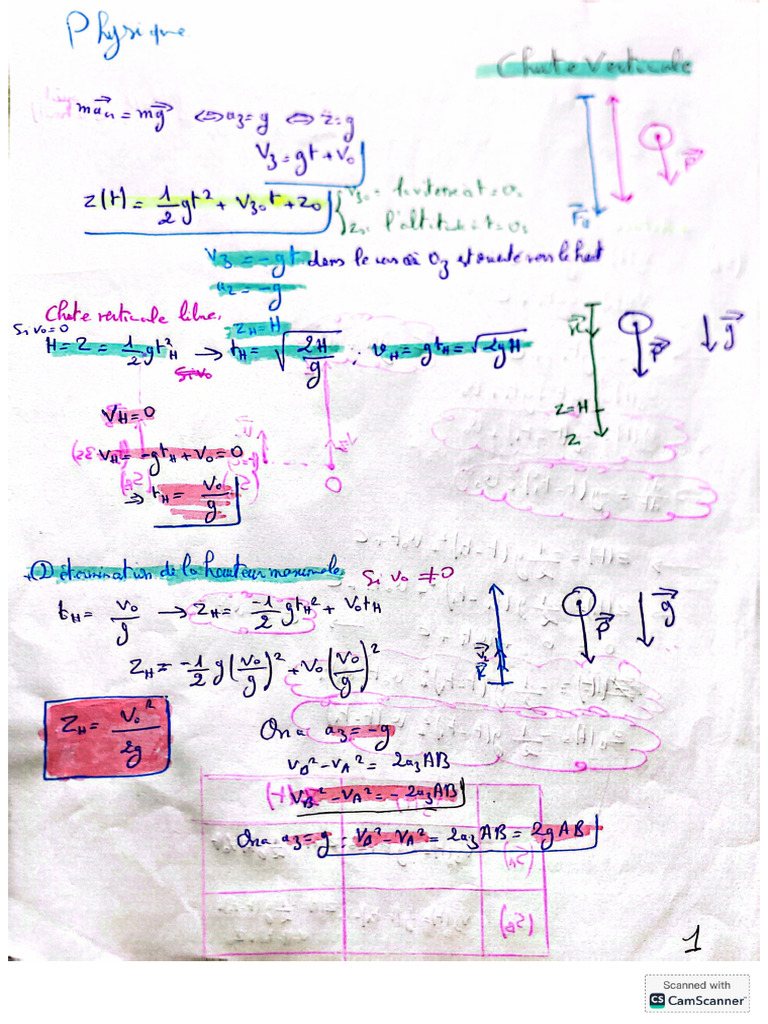 Physique
Chute Verticale
m\vec{a}_G = m\vec{g} ⇔ a_z = g ⇔ \ddot{z} = g
V_z = gt + V_0
Z(t) = \frac{1}{2}gt^2 + V_{z_0}t + z_0
V_{z_0} = la vitesse à t = 0s
z_0: l'altitude à t = 0s
V_z = -gt dans le cas où Oz est orienté vers le haut
a_z = -g
Chute verticale libre.
Si v_0 = 0
Z_H = H
H = Z = \frac{1}{2}gt_H^2 → t_H = \sqrt{\frac{2H}{g}} ; v_H = gt_H = \sqrt{2gH}
\vec{P}
\vec{g}
\vec{k}
Z = H
Z
V_H = 0
V_H = -gt_H + V_0 = 0
O
⇒ t_H = \frac{V_0}{g}
Détermination de la hauteur maximale Si v_0 ≠ 0
t_H = \frac{v_0}{g} → Z_H = \frac{-1}{2}gt_H^2 + V_0t_H
\vec{P}
\vec{g}
\vec{k}
Z_H = -\frac{1}{2}g(\frac{v_0}{g})^2 + v_0(\frac{v_0}{g})^2
Z_H = \frac{V_0^2}{2g}
On a a_z = -g
V_B^2 - V_A^2 = 2a_zAB
V_B^2 - V_A^2 = -2a_zAB
On a a_z = g : V_B^2 - V_A^2 = 2a_zAB = 2gAB
1
Scanned with
CS CamScanner